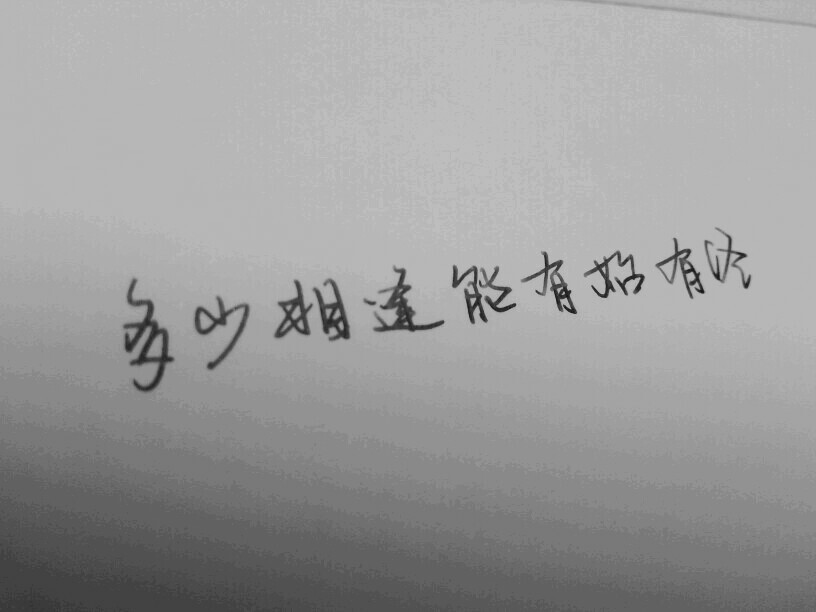 多少相逢能有始有终